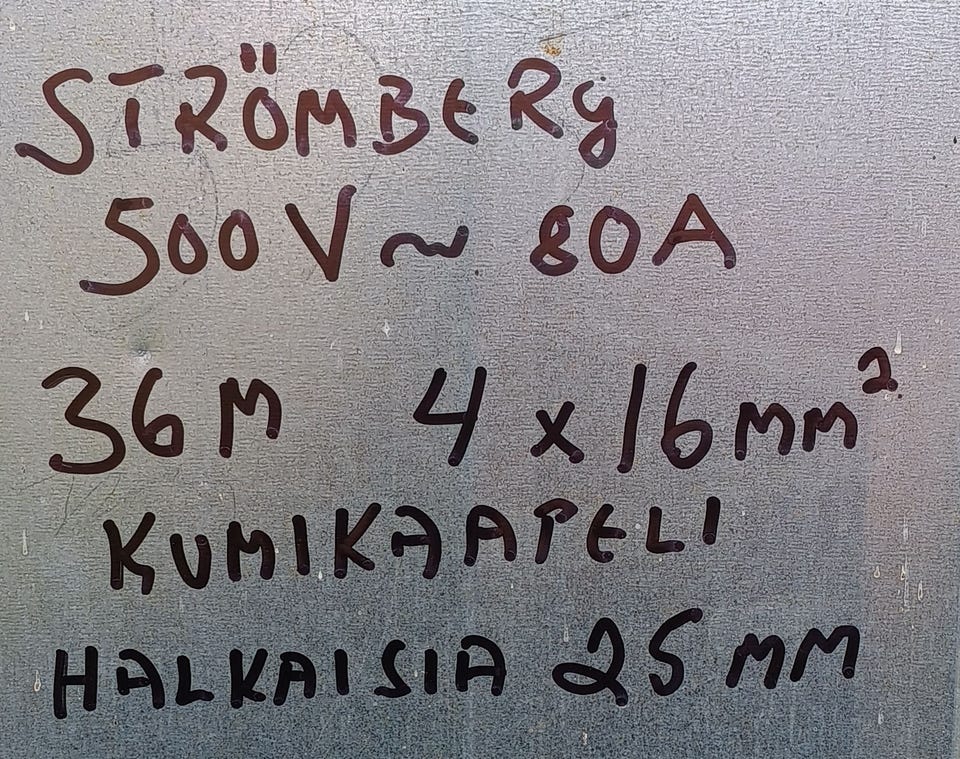 STRÖMBERg
500V ~ 80A
36M 4 x 16mm²
KUMIKAAPELI
HALKAISIA 25 MM